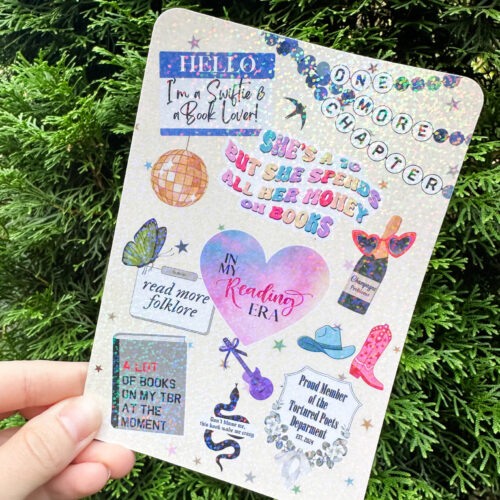 HELLO
I'm a Swiftie &
a Book Lover!
ONE
MORE
CHAPTER
SHE'S A 10
BUT SHE SPENDS
ALL HER MONEY
ON BOOKS
IN
MY
Reading
ERA
Champagne
Problems
read more
folklore
A LOT
OF BOOKS
ON MY TBR
AT THE
MOMENT
Don't blame me,
this book made me crazy
Proud Member
of the
Tortured Poets
Deparment
EST. 2024